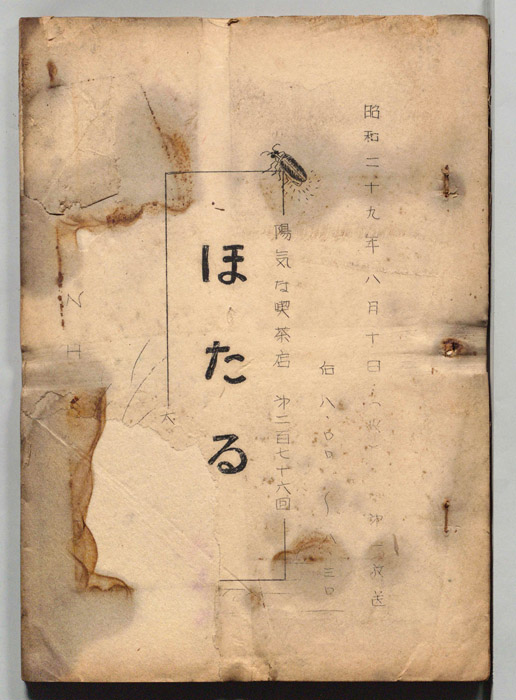 昭和二十九年八月十日(火) 第二放送
后八.〇〇〜八.三〇
陽気な喫茶店 第二百七十六回
ほたる
大
NH